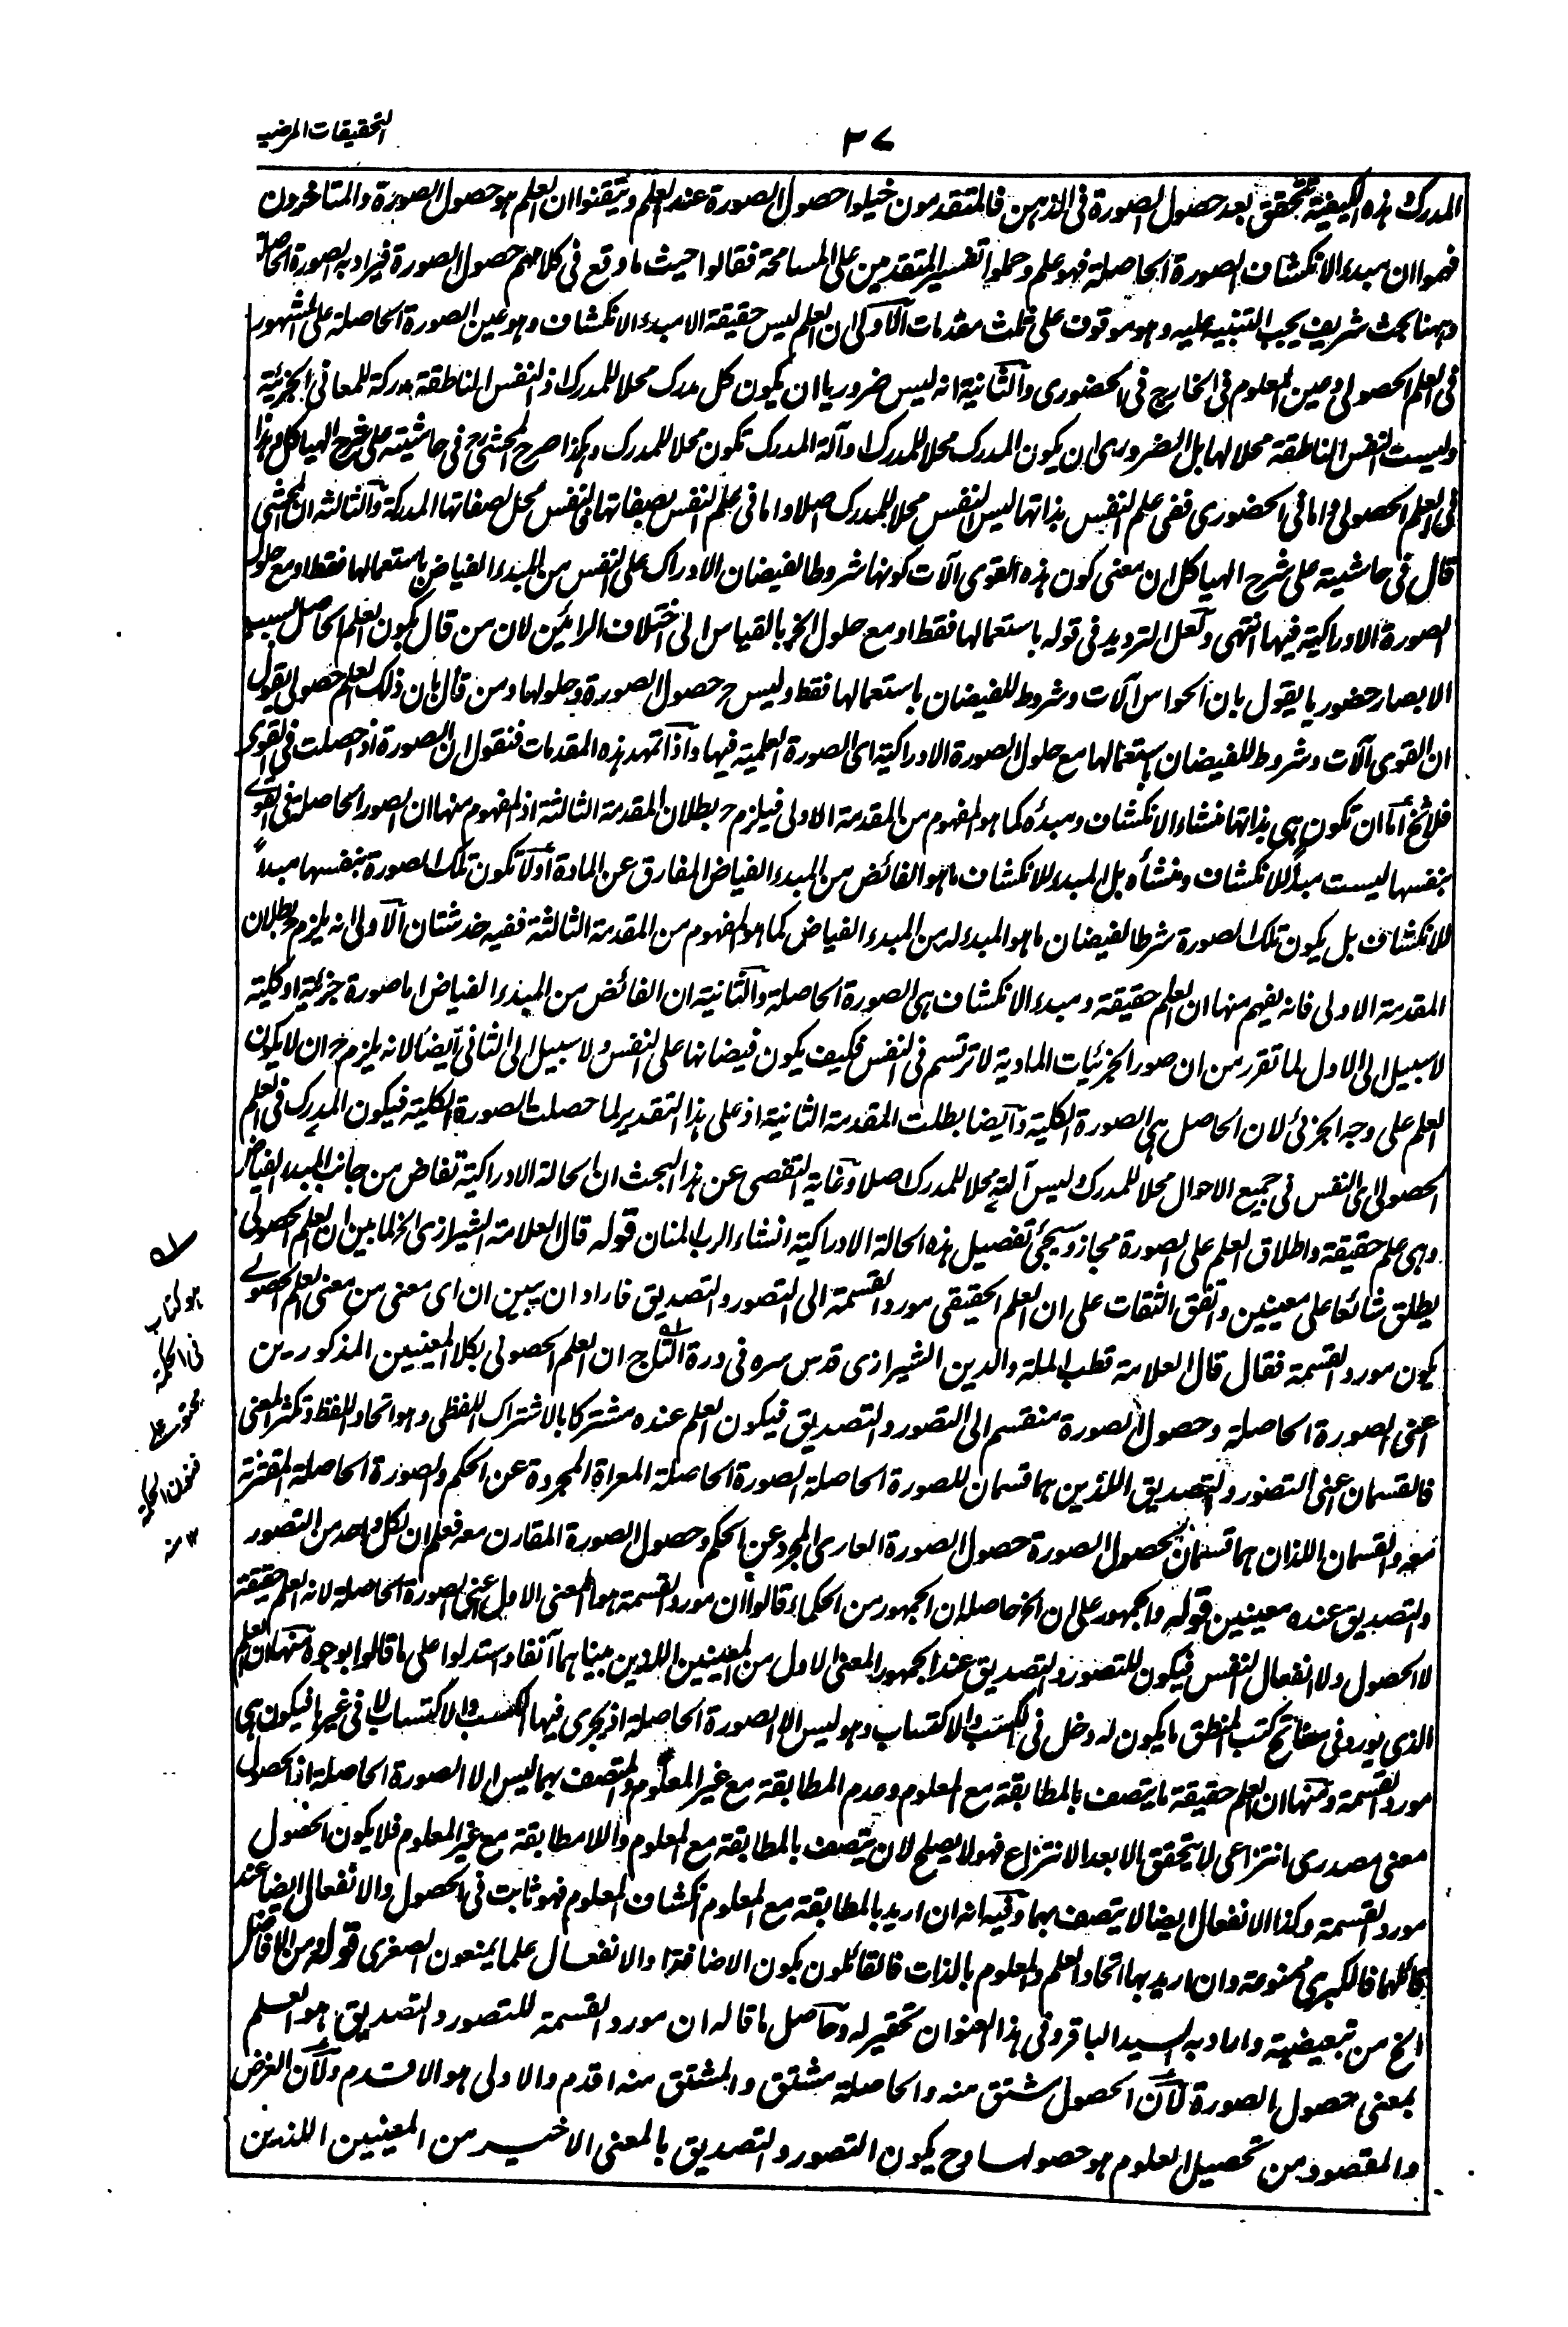 التحقيقات المرضيه
٣٧
المدرك هذه الكيفية تتحقق بعد حصول الصورة فى الذهن فالمتقدمون خيلوا حصول الصورة عند العلم وتيقنوا ان العلم هو حصول الصورة والمتاخرون
فهموا ان مبدء الانكشاف الصورة الحاصلة فهو علم وحملوا تفسير المتقدمين على المسامحة فقالوا حيث ما وقع فى كلامهم حصول الصورة فيراد به الصورة الحاصلة
وههنا بحث شريف يجب التنبيه عليه وهو موقوف على ثلث مقدمات الاولى ان العلم ليس حقيقة الا مبدء الانكشاف وهو عين الصورة الحاصلة على المشهور
فى العلم الحصولى وعين المعلوم فى الخارج فى الحضورى والثانية انه ليس ضروريا ان يكون كل مدرك محلا للمدرك اذ النفس الناطقة مدركة للمعانى الجزئية
وليست النفس الناطقة محلا لها بل الضرورى ان يكون المدرك محلا للمدرك او آلة المدرك تكون محلا للمدرك وهكذا صرح المحشى رح فى حاشيته على شرح الهياكل وهذا
فى العلم الحصولى واما فى الحضورى ففى علم النفس بذاتها ليس النفس محلا للمدرك اصلا واما فى علم النفس بصفاتها فالنفس محل لصفاتها المدركة والثالثة ان المحشى
قال فى حاشيته على شرح الهياكل ان معنى كون هذه القوى آلات كونها شروطا لفيضان الادراك على النفس من المبدء الفياض باستعمالها فقط او مع حلول
الصورة الادراكية فيها انتهى ولعل الترديد فى قوله باستعمالها فقط او مع حلول الخ بالقياس الى اختلاف الرائين لان من قال بكون العلم الحاصل بسبب
الابصار حضوريا يقول بان الحواس آلات وشروط للفيضان باستعمالها فقط وليس ح حصول الصورة وحلولها ومن قال بان ذلك العلم حصولى يقول
ان القوى آلات وشروط للفيضان باستعمالها مع حلول الصورة الادراكية اى الصورة العلمية فيها واذا تمهد هذه المقدمات فنقول ان الصورة اذ حصلت فى القوى
فلا يخ اما ان تكون هى بذاتها منشاء الانكشاف ومبدئه كما هو المفهوم من المقدمة الاولى فيلزم ح بطلان المقدمة الثالثة اذ المفهوم منها ان الصور الحاصلة فى القوى
بنفسها ليست مبدأ للانكشاف ومنشأه بل المبدء للانكشاف ما هو الفائض من المبدء الفياض المفارق عن المادة اولا تكون تلك الصورة بنفسها مبدءً
للانكشاف بل يكون تلك الصورة شرطا لفيضان ما هو المبدء له من المبدء الفياض كما هو المفهوم من المقدمة الثالثة ففيه خدشتان الاولى انه يلزم ح بطلان
المقدمة الاولى فانه يفهم منها ان العلم حقيقة ومبدء الانكشاف هى الصورة الحاصلة والثانية ان الفائض من المبدء الفياض اما صورة جزئية او كلية
لا سبيل الى الاول لما تقرر من ان صور الجزئيات المادية لا ترتسم فى النفس فكيف يكون فيضانها على النفس ولا سبيل الى الثانى ايضا لانه يلزم ح ان لا يكون
العلم على وجه الجزئى لان الحاصل هى الصورة الكلية وايضا بطلت المقدمة الثانية اذ على هذا التقدير لما حصلت الصورة الكلية فيكون المدرك فى العلم
الحصولى اى النفس فى جميع الاحوال محلا للمدرك ليس آلته محلا للمدرك اصلا وغاية التفصى عن هذا البحث ان الحالة الادراكية تفاض من جانب المبدء الفياض
وهى علم حقيقة واطلاق العلم على الصورة مجاز وسيجئ تفصيل هذه الحالة الادراكية انشاء الرب المنان قوله قال العلامة الشيرازى الخ لما بين ان العلم الحصولى
يطلق شائعا على معنيين واتفق الثقات على ان العلم الحقيقى مورد القسمة الى التصور والتصديق فاراد ان يبين ان اى معنى من معنى العلم الحصولى
يكون مورد القسمة فقال قال العلامة قطب الملة والدين الشيرازى قدس سره فى درة التاج ان العلم الحصولى بكلا المعنيين المذكورين
اعنى الصورة الحاصلة وحصول الصورة منقسم الى التصور والتصديق فيكون العلم عنده مشتركا بالاشتراك اللفظى وهو اتحاد اللفظ وتكثر المعنى
فالقسمان اعنى التصور والتصديق اللذين هما قسمان للصورة الحاصلة الصورة الحاصلة المعراة المجردة عن الحكم والصورة الحاصلة المقترنة
معه والقسمان اللذان هما قسمان لحصول الصورة حصول الصورة العارى المجرد عن الحكم وحصول الصورة المقارن معه فعلم ان لكل واحد من التصور
والتصديق عنده معنيين قوله والجمهور على ان الخ حاصله ان الجمهور من الحكماء قالوا ان مورد القسمة هو المعنى الاول اعنى الصورة الحاصلة لانه العلم حقيقة
لا الحصول ولا انفعال النفس فيكون للتصور والتصديق عند الجمهور المعنى الاول من المعنيين اللذين بيناهما آنفا واستدلوا على ما قالوا بوجوه منها ان العلم
الذى يورد فى مفاتح كتب المنطق ما يكون له دخل فى الكسب والاكتساب وهو ليس الا الصورة الحاصلة اذ يجرى فيها الكسب والاكتساب لا فى غيرها فيكون هى
مورد القسمة ومنها ان العلم حقيقة ما يتصف بالمطابقة مع المعلوم وعدم المطابقة مع غير المعلوم والمتصف بهما ليس الا الصورة الحاصلة اذ الحصول
معنى مصدرى انتزاعى لا يتحقق الا بعد الانتزاع فهو لا يصلح لان يتصف بالمطابقة مع المعلوم واللامطابقة مع غير المعلوم فلا يكون الحصول
مورد القسمة وكذا الانفعال ايضا لا يتصف بهما وفيه انه ان اريد بالمطابقة مع المعلوم انكشاف المعلوم فهو ثابت فى الحصول والانفعال ايضا عند
قائلهما فالكبرى ممنوعة وان اريد بها اتحاد العلم والمعلوم بالذات فالقائلون بكون الاضافة او الانفعال علما يمنعون الصغرى قوله ومن الافاضل
الخ من تبعيضية واراد به السيد الباقر وفى هذا العنوان تحقير له وحاصل ما قاله ان مورد القسمة للتصور والتصديق هو العلم
بمعنى حصول الصورة لان الحصول مشتق منه والحاصلة مشتق والمشتق منه اقدم والاولى هو الاقدم ولان الغرض
والمقصود من تحصيل العلوم هو حصولها وح يكون التصور والتصديق بالمعنى الاخير من المعنيين اللذين
هو كتاب
فى الحكمة
فنون الحكمة
١٢ منه